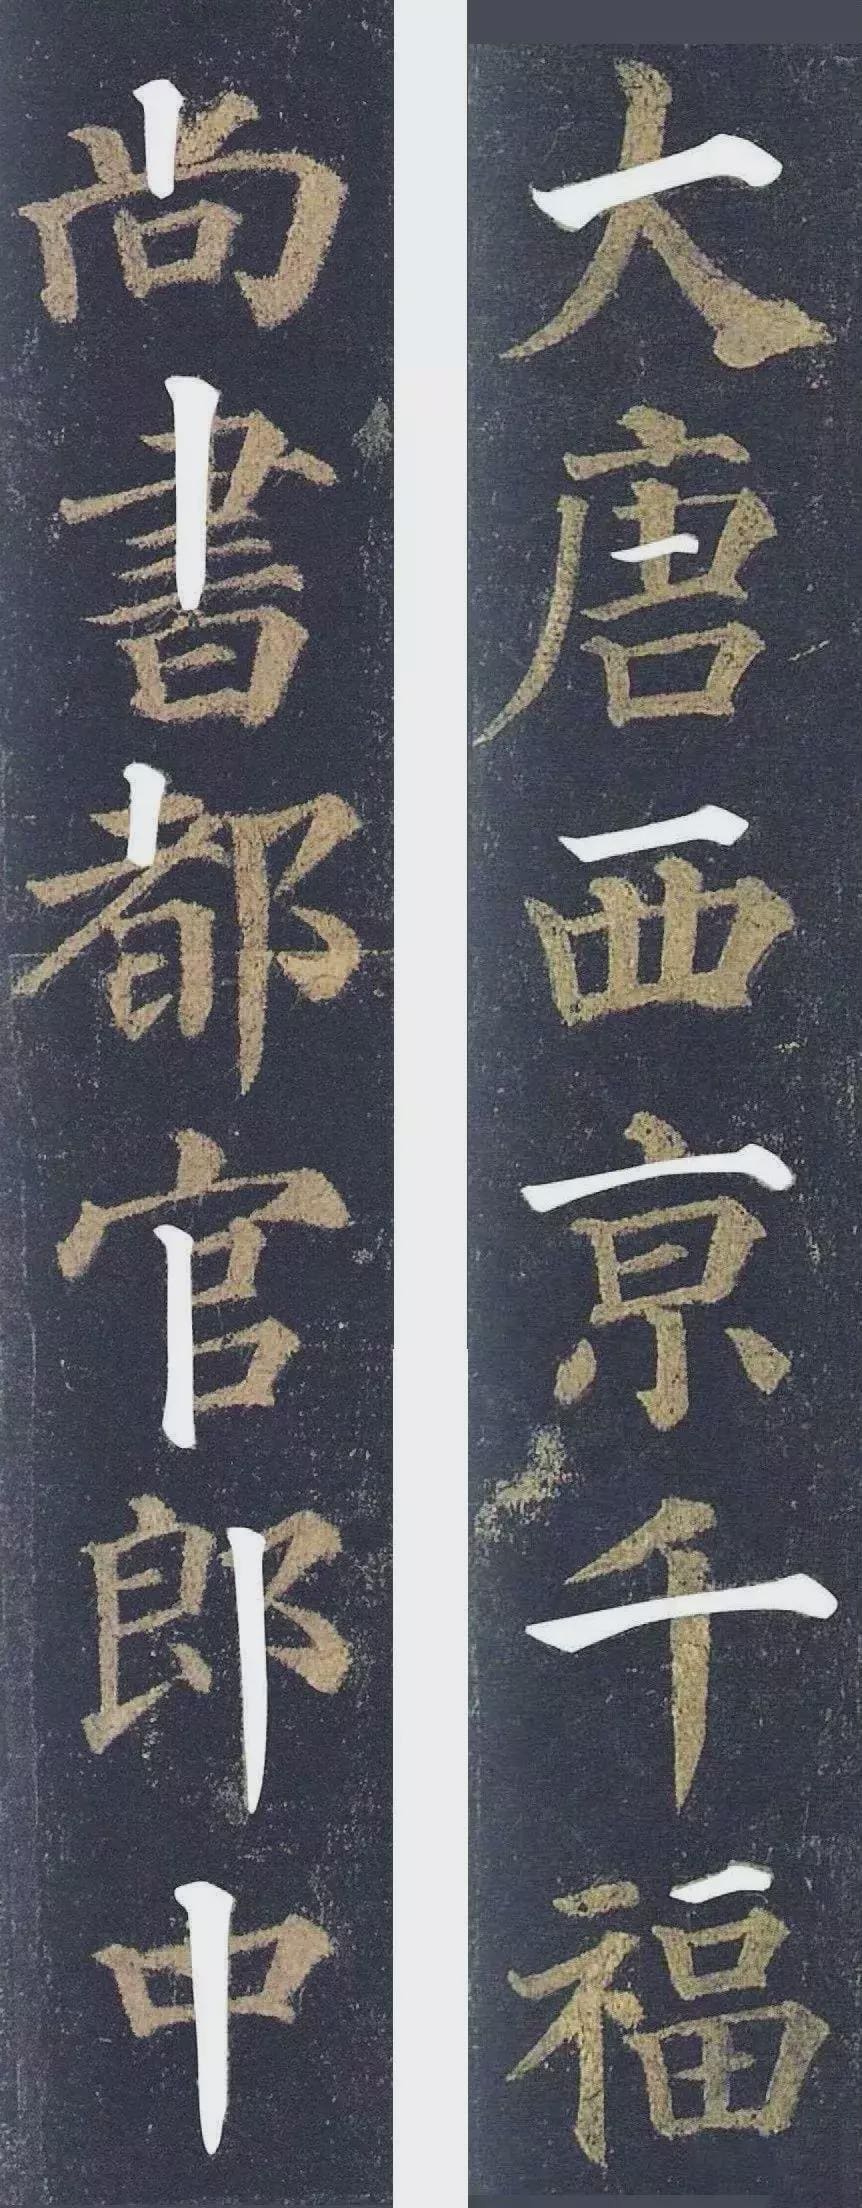 大唐西京千福
尚書都官郎中